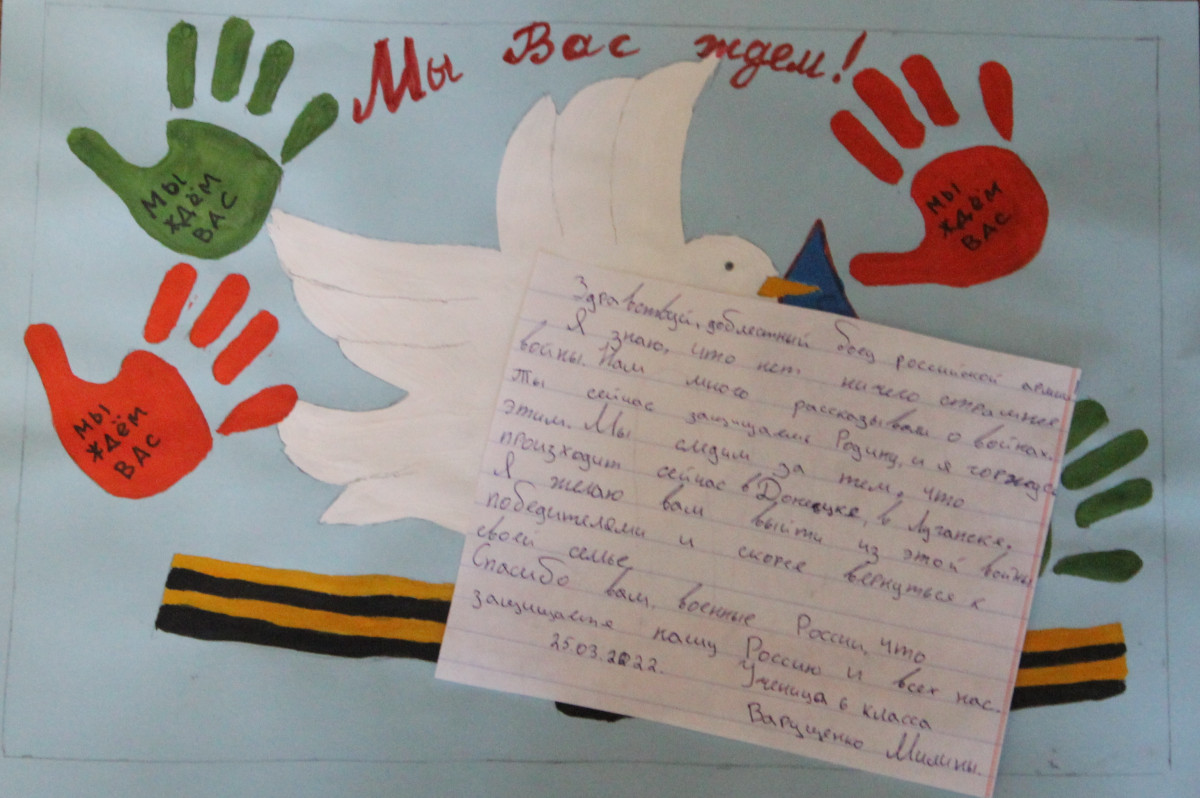 Мы Вас ждем!
МЫ
ЖДЁМ
ВАС
МЫ
ЖДЁМ
ВАС
МЫ
ЖДЁМ
ВАС
Здравствуй, доблестный боец российской армии
Я знаю, что нет ничего страшнее
войны. Нам много рассказывали о войнах.
Ты сейчас защищаешь Родину, и я горжусь
этим. Мы следим за тем, что
произходит сейчас в Донецке, в Луганске.
Я желаю вам выйти из этой войны
победителями и скорее вернуться к
своей семье.
Спасибо вам, военные России, что
защищаете нашу Россию и всех нас.
25.03.2022. Ученица 6 класса
Варущенко Милины.